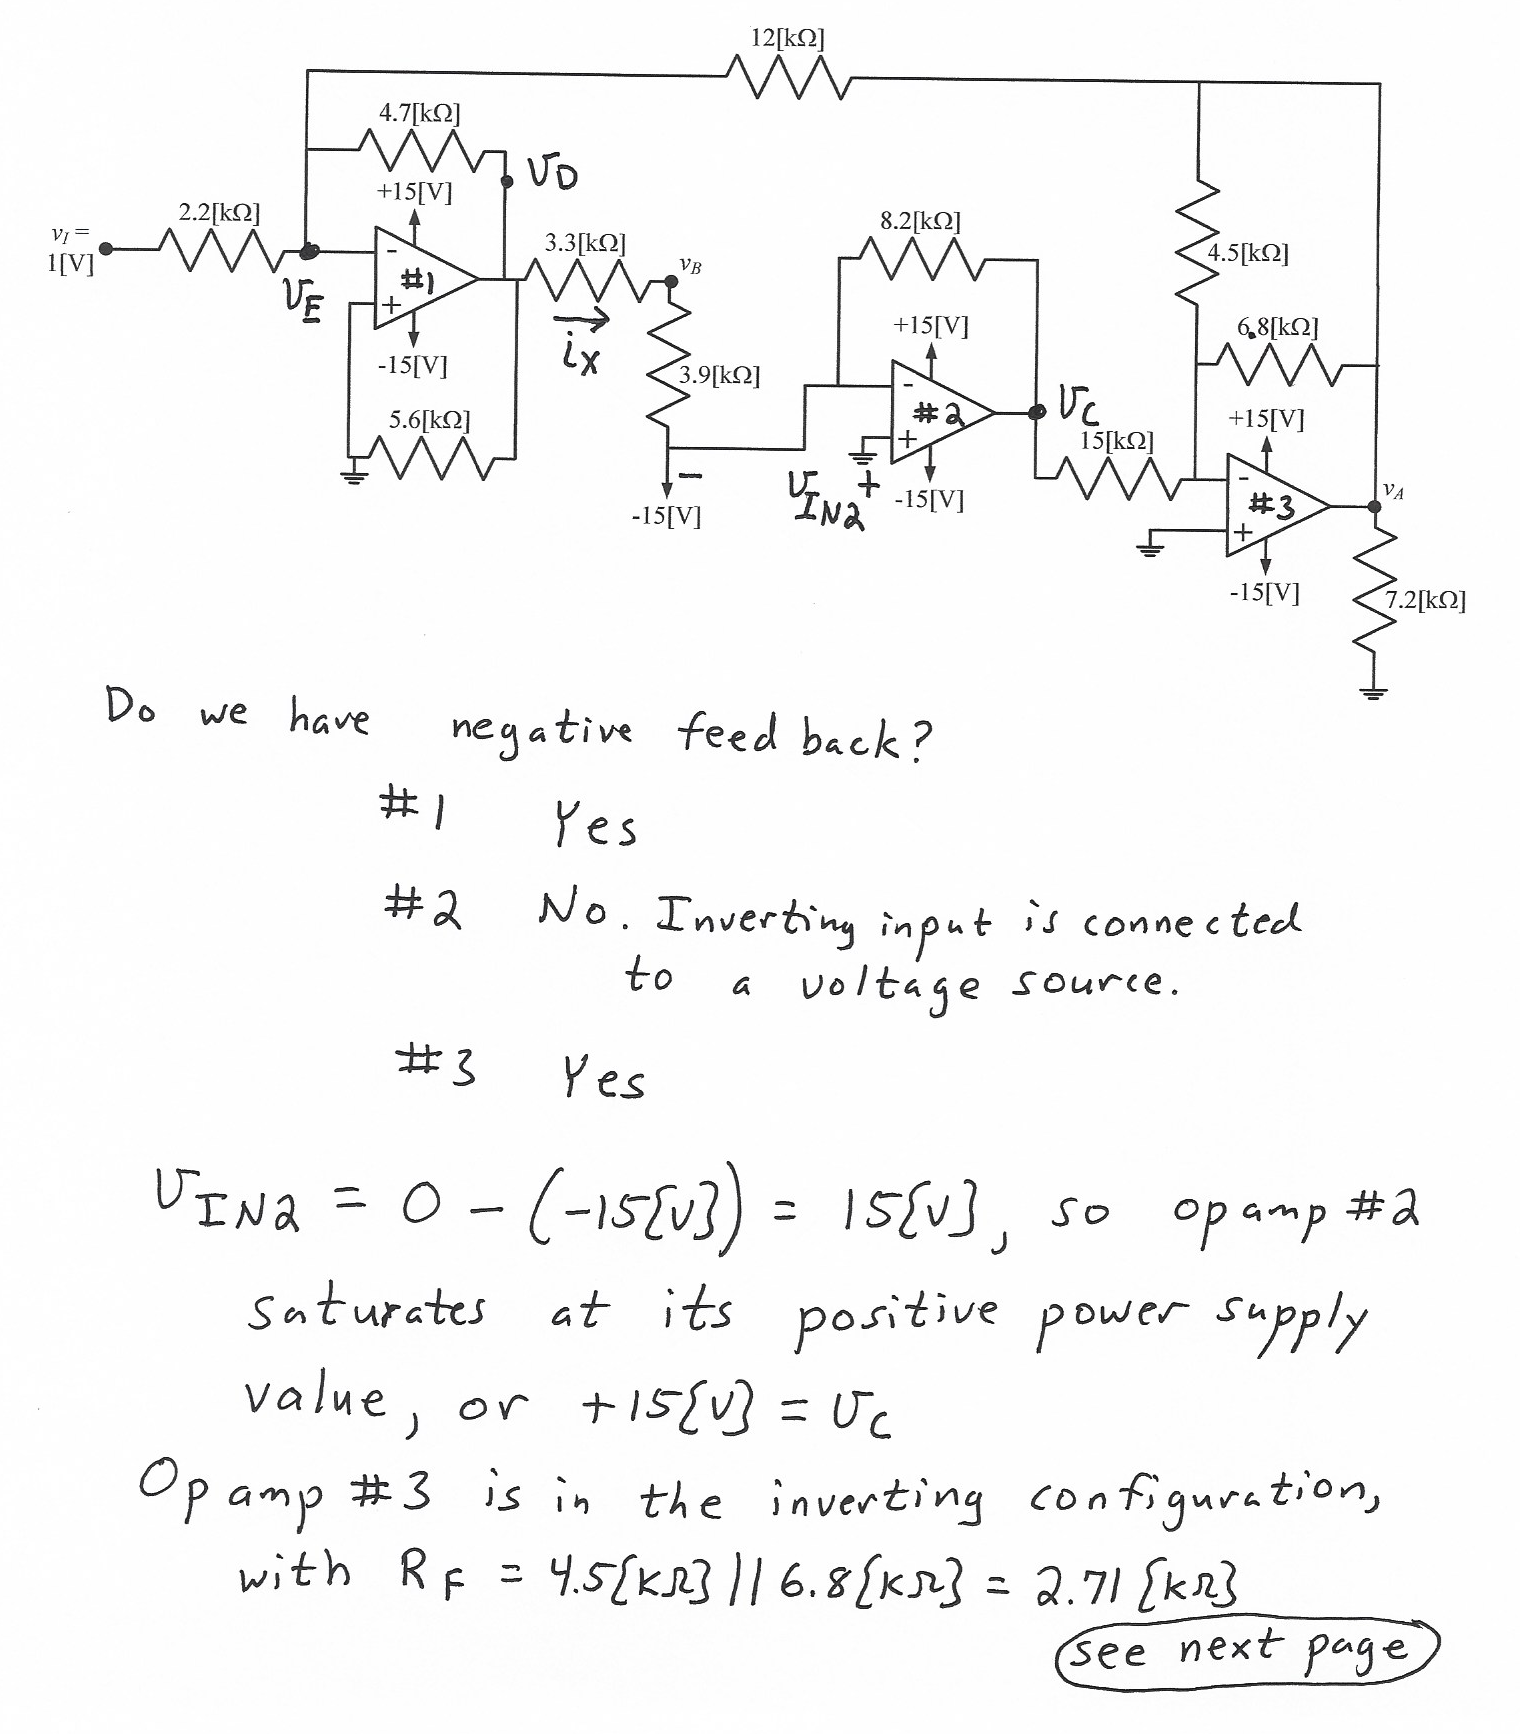 12[kΩ]
4.7[kΩ]
v_D
+15[V]
2.2[kΩ]
v_I =
1[V]
v_E
-
#1
+
-15[V]
5.6[kΩ]
3.3[kΩ]
i_X
v_B
3.9[kΩ]
-
-15[V]
8.2[kΩ]
+15[V]
-
#2
+
-15[V]
v_IN2 +
v_C
15[kΩ]
4.5[kΩ]
6.8[kΩ]
+15[V]
-
#3
+
-15[V]
v_A
7.2[kΩ]
Do we have negative feedback?
#1 Yes
#2 No. Inverting input is connected
to a voltage source.
#3 Yes
v_IN2 = 0 - (-15[V]) = 15[V], so op amp #2
saturates at its positive power supply
value, or +15[V] = v_C
Op amp #3 is in the inverting configuration,
with R_F = 4.5[kΩ] || 6.8[kΩ] = 2.71[kΩ]
see next page